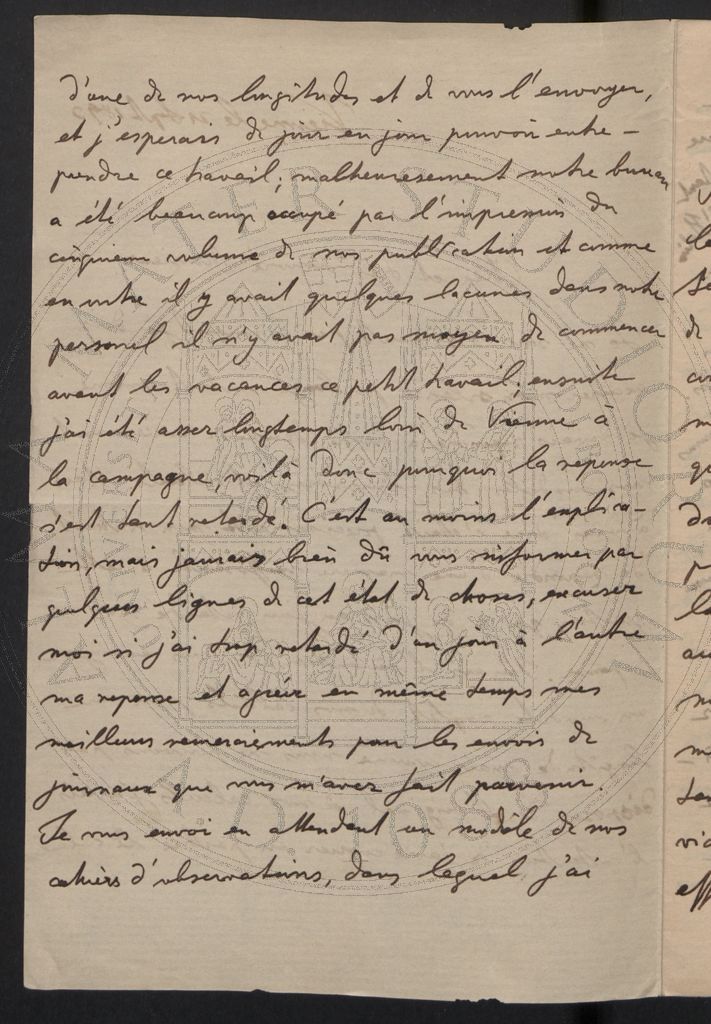 d'une de nos longitudes et de vous l'envoyer,
et j'esperais de jour en jour pouvoir entre-
prendre ce travail; malheureusement notre bureau
a été beaucoup occupé par l'impression du
cinquieme volume de nos publication et comme
en outre il y avait quelques lacunes dans notre
personel il n'y avait pas moyen de commencer
avant les vacances ce petit travail, ensuite
j'ai été assez longtemps loin de Vienne à
la campagne, voilà donc pourquoi la reponse
s'est tant retardé. C'est au moins l'explica-
tion, mais j'aurais bien dû vous informer par
quelques lignes de cet état de choses, excusez
moi si j'ai trop retardé d'un jour à l'autre
ma reponse et agréez en même temps mes
meilleurs remerciements pour les envois de
journaux que vous m'avez fait parvenir.
Je vous envoi en attendant un modèle de nos
cahiers d'observations, dans lequel j'ai
ALMA MATER STUDIORUM
A.D. 1088